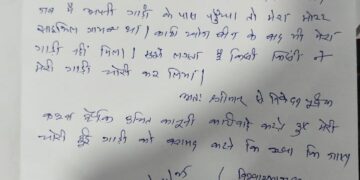 जब मैं अपनी गाड़ी के पास पहुँचा तो मेरा मोटर
साइकिल गायब था। काफी खोज बीन के बाद भी मेरा
गाड़ी नहीं मिला। मुझे लगता है किसी ने
मेरी गाड़ी चोरी कर लिया।
अतः श्रीमान से निवेदन पूर्वक
कहना है कि उचित कानूनी कार्रवाई करते हुए मेरी
चोरी हुई गाड़ी को बरामद करने कि कृपा कि जाए